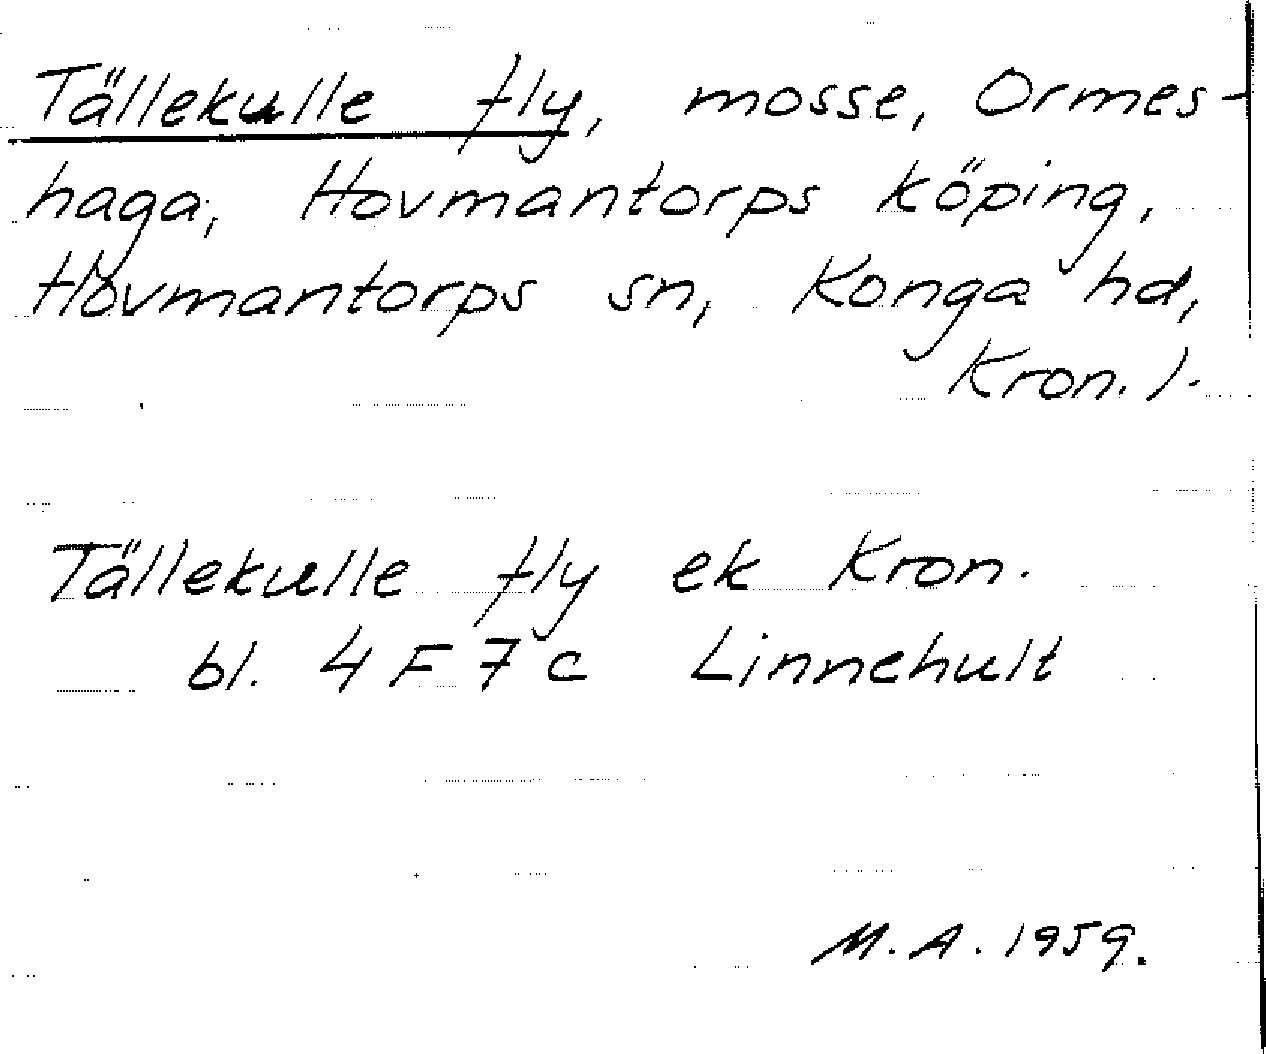 Tällekulle fly, mosse, Ormes-
haga, Hovmantorps köping,
Hovmantorps sn, Konga hd,
Kron. l.
Tällekulle fly ek Kron.
bl. 4 F 7 c Linnehult
M.A. 1959.